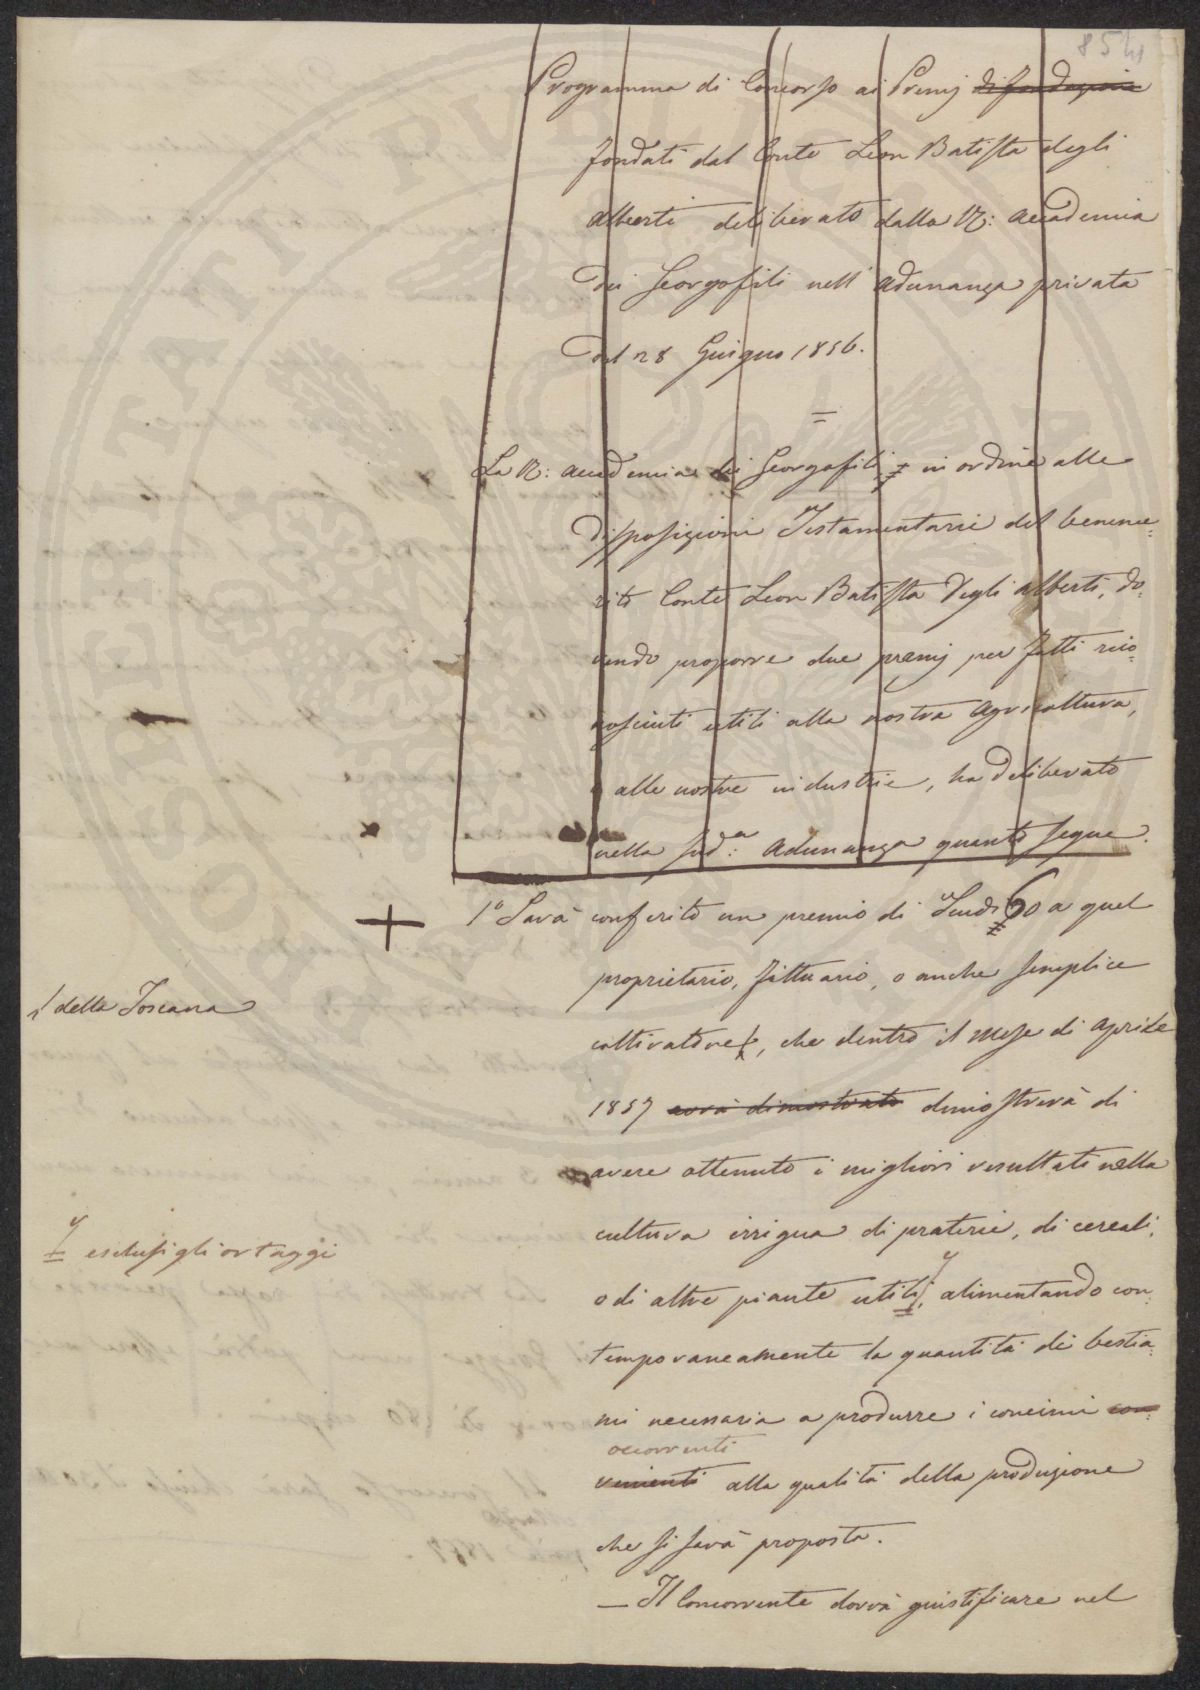 Programma di Concorso ai Premj di fondazione
fondati dal Conte Leon Batista degli
Alberti deliberato dalla R: Accademia
dei Georgofili nell'Adunanza privata
del 28 Giugno 1856.
=
La R: Accademia dei Georgofili, in ordine alle
disposizioni Testamentarie del beneme=
rito Conte Leon Batista degli Alberti, do=
vendo proporre due premj per fatti rico=
nosciuti utili alla nostra Agricoltura,
o alle nostre industrie, ha deliberato
nella sud.a Adunanza quanto segue.
1º Sarà conferito un premio di Scudi 60 a quel
proprietario, fittuario, o anche semplice
della Toscana
coltivatore, che dentro il mese di Aprile
1857 avrà dimostrato dimostrerà di
avere ottenuto i migliori resultati nella
cultura irrigua di praterie, di cereali,
esclusi gli ortaggi
o di altre piante utili, alimentando con=
temporaneamente la quantità di bestia=
mi necessaria a produrre i concimi con=
occorrenti
venienti alla qualità della produzione
che si sarà proposta.
— Il Concorrente dovrà giustificare nel